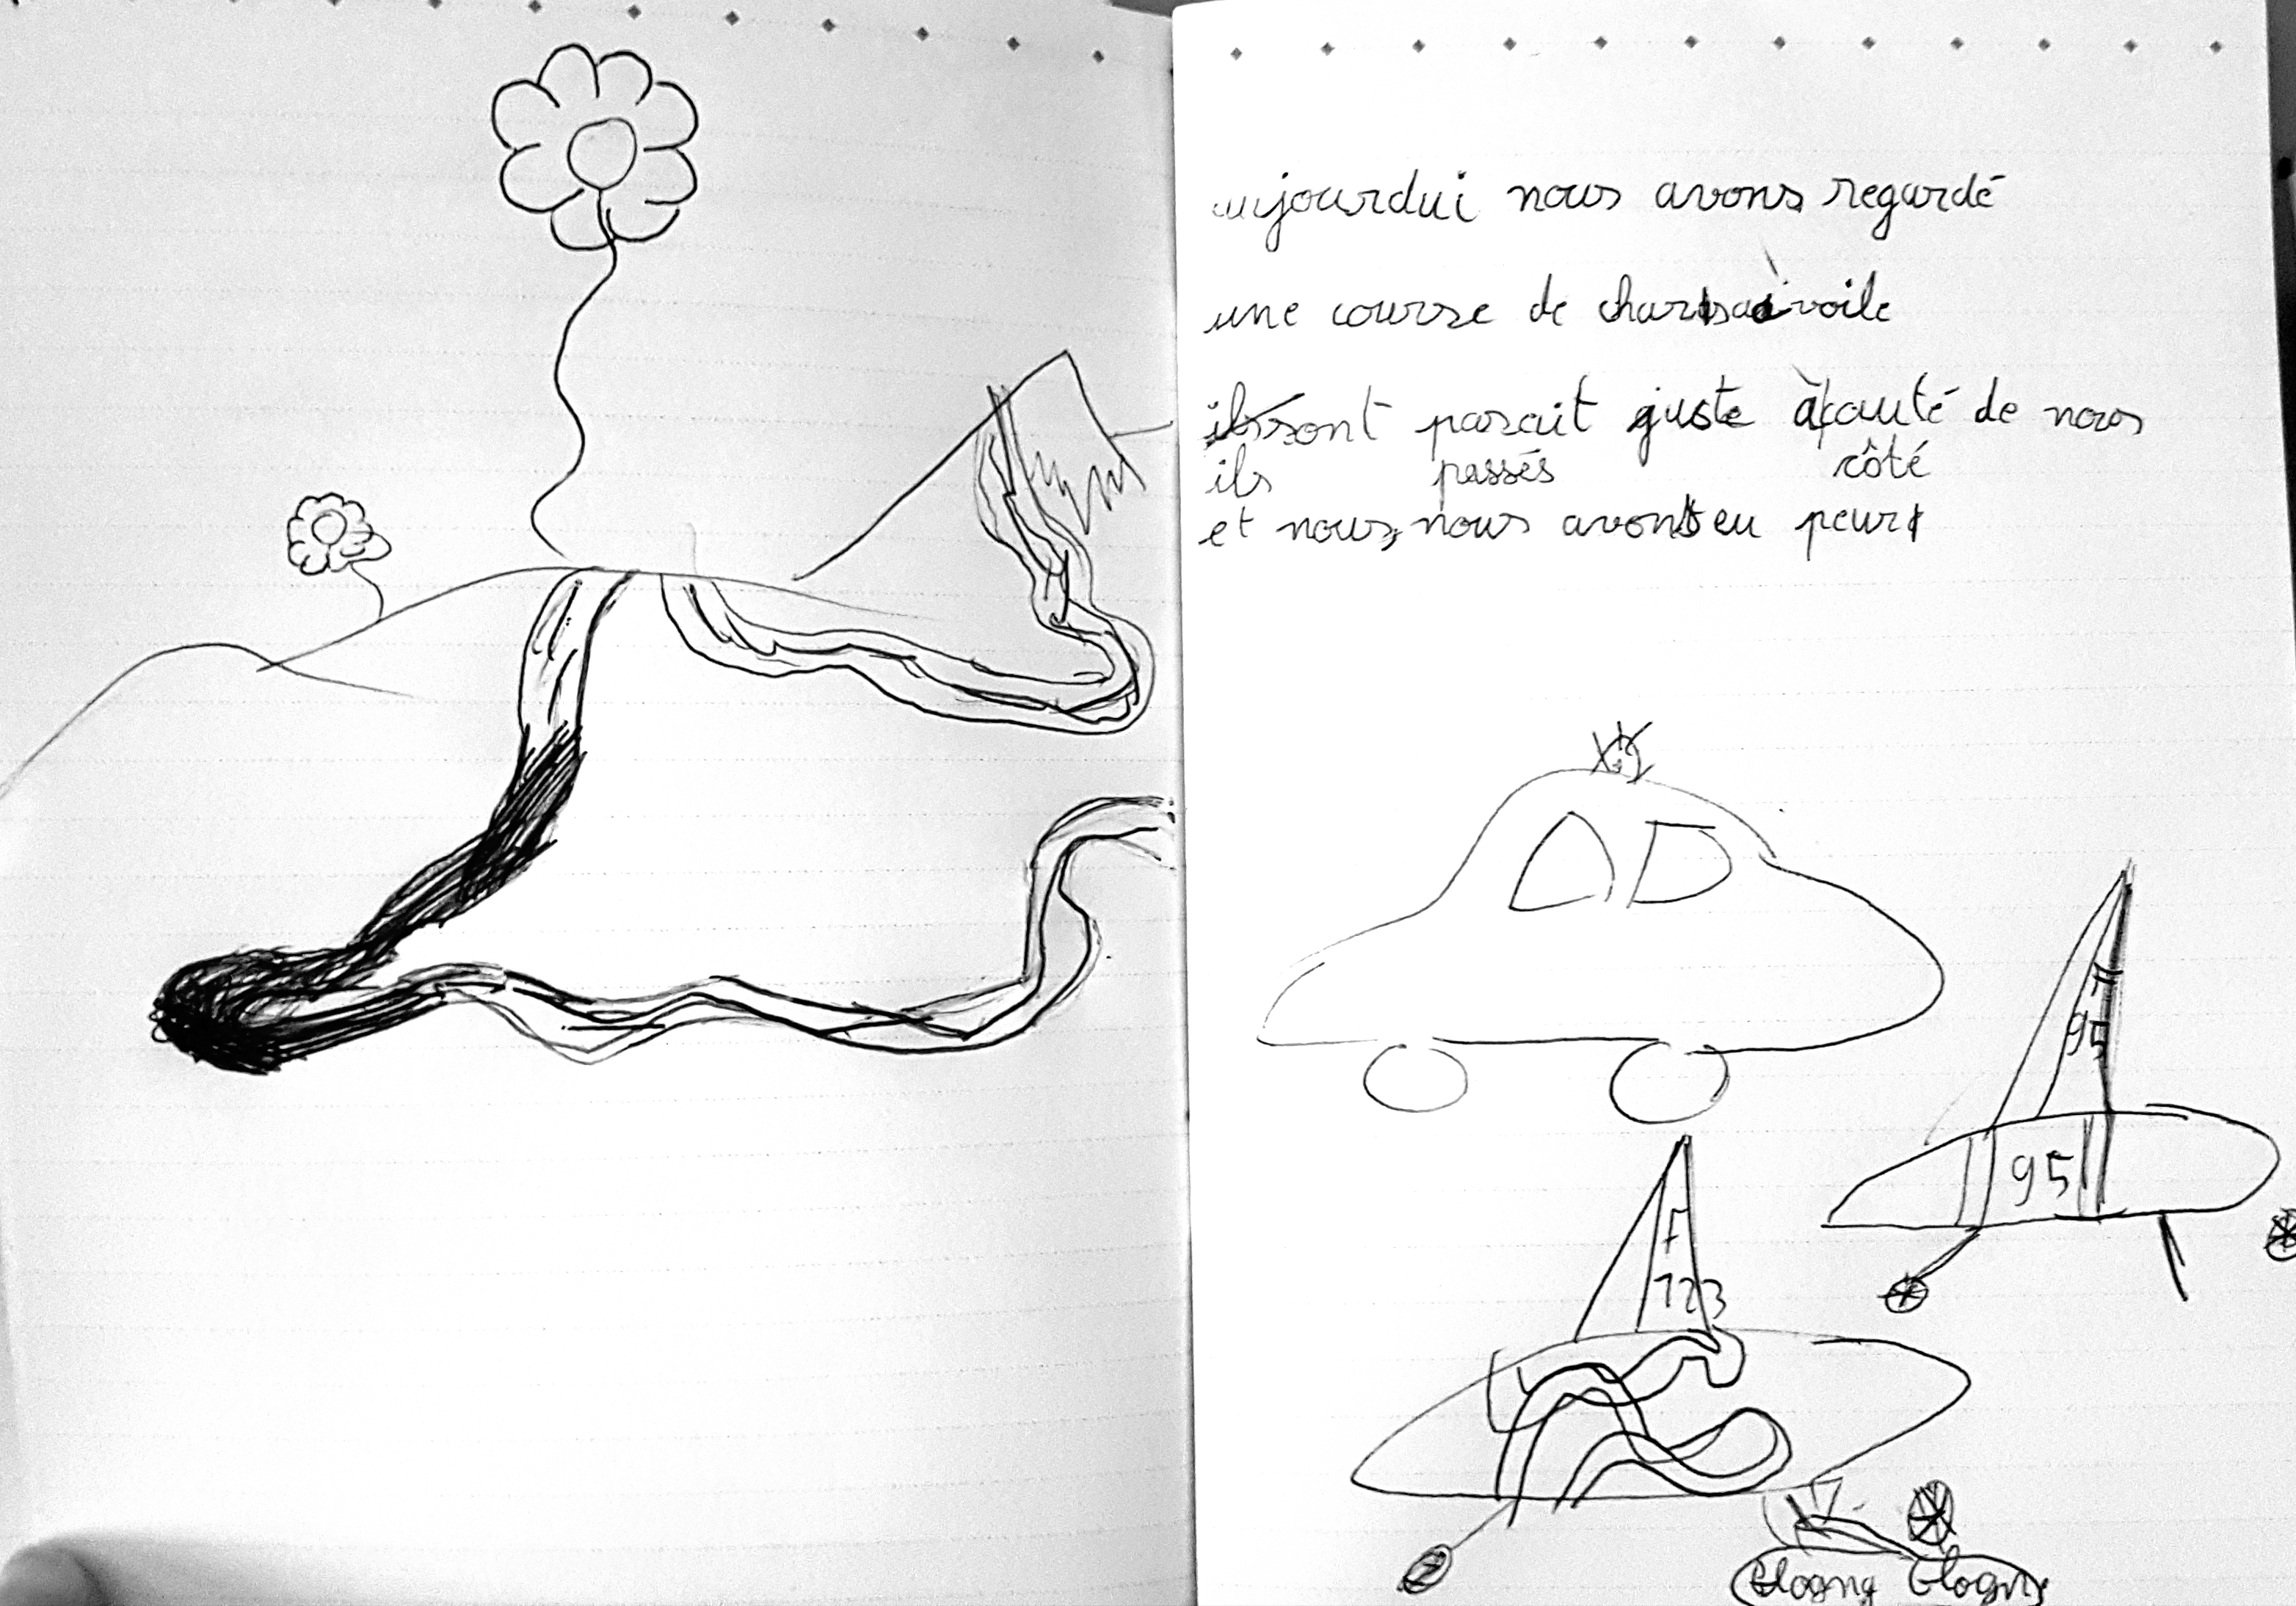 aujourdui nous avons regardé
une course de chars à voile
ils sont parsait juste à cauté de nous
ils passés côté
et nous, nous avons eu peur
F
95
95
F
123